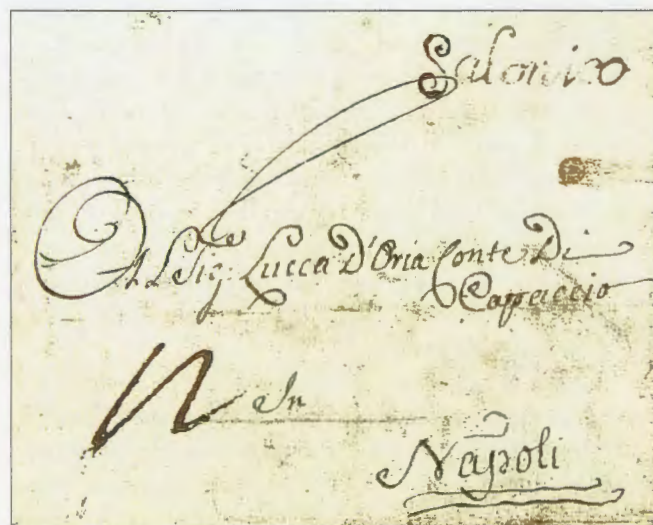 Salonico
Al Sig: Lucca D'Oria Conte Di
Capaccio
In
Napoli